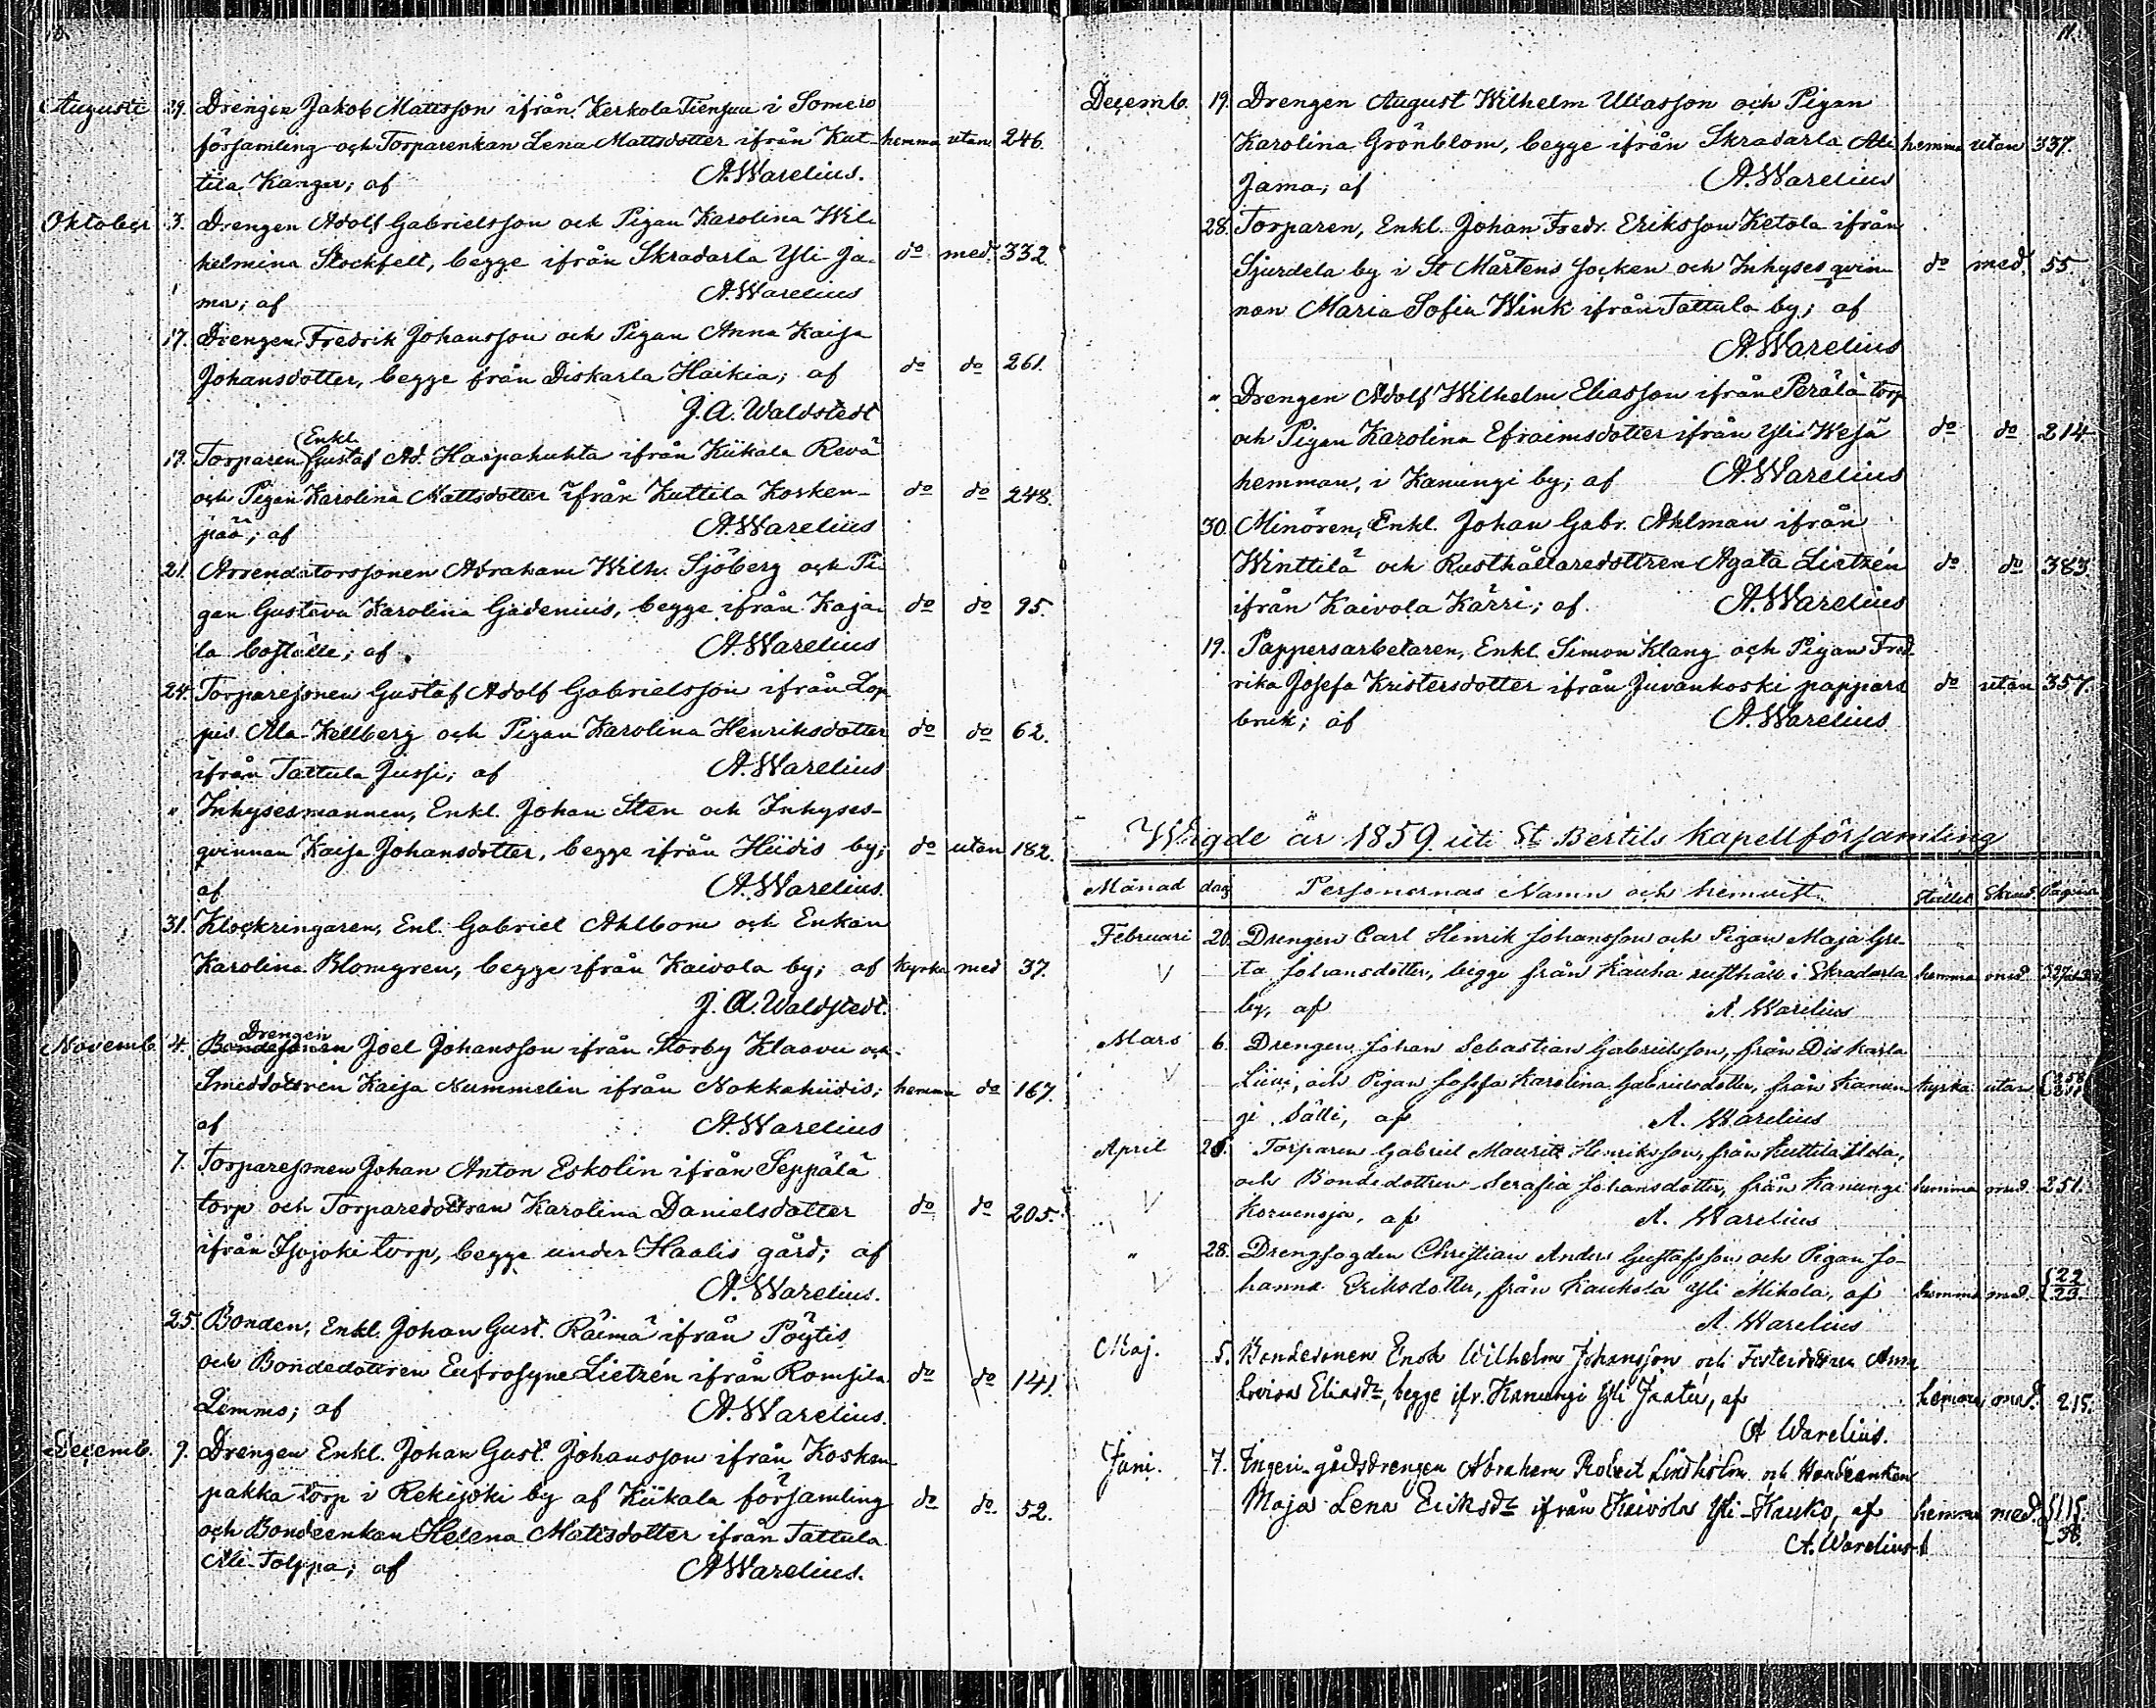 Augusti 29. Drengen Jakob Mattsson ifrån Kerkola Tiensuu i Somero
församling och Torparenkan Lena Mattsdotter ifrån Kut- hemma utan 246.
tila Kangas; af A. Warelius.
Oktober 3. Drengen Adolf Gabrielsson och Pigan Karolina Wil-
helmina Stockfelt, begge ifrån Skradarla Yli-Ja- do med. 332.
ma; af A. Warelius
17. Drengen Fredrik Johansson och Pigan Anna Kaisa
Johansdotter, begge från Diskarla Haikia; af do do 261.
J. A. Waldstedt
Enkl.
19. Torparen Gustaf Ad. Haapahuhta ifrån Kiikala Revä
och Pigan Karolina Mattsdotter ifrån Kuttila Kosken- do do 248.
pää; af A. Warelius
21. Arrendatorssonen Abraham Wilh. Sjöberg och Pi-
gan Gustava Karolina Gadenius, begge ifrån Kaja- do do 95.
la boställe; af A. Warelius
24. Torparesonen Gustaf Adolf Gabrielsson ifrån Lop
pis Ala-Kellberg och Pigan Karolina Henriksdotter do do 62.
ifrån Tattula Jussi; af A. Warelius
" Inhysesmannen, Enkl. Johan Sten och Inhyses-
qvinnan Kaisa Johansdotter, begge ifrån Hiidis by; do utan 182.
af A. Warelius.
31. Klockringaren, Enl. Gabriel Ahlbom och Enkan
Karolina Blomgren, begge ifrån Kaivola by; af kyrka med 37.
J. A. Waldstedt.
Drengen
Novemb. 4. Bondesonen Joel Johansson ifrån Storby Klaavu och
Smeddottren Kaisa Nummelin ifrån Nokkahiidis; hemma do 167.
af A. Warelius
7. Torparesonen Johan Anton Eskolin ifrån Seppälä
torp och Torparedottren Karolina Danielsdotter do do 205.
ifrån Isojoki torp, begge under Haalis gård; af
A. Warelius.
25. Bonden, Enkl. Johan Gust. Räimä ifrån Pöytis
och Bondedottren Eufrosyne Lietzén ifrån Romsila do do 141.
Lemmo; af A. Warelius.
Decemb. 9. Drengen Enkl. Johan Gust. Johansson ifrån Kosken
pakka torp i Rekijoki by af Kiikala församling do do 52.
och Bondeenkan Helena Mattsdotter ifrån Tattula
Ali-Tolppa; af A. Warelius.
11.
Decemb. 19. Drengen August Wilhelm Uliasson och Pigan
Karolina Grönblom, begge ifrån Skradarla Ali hemma utan 337.
Jama; af A. Warelius
28. Torparen, Enkl. Johan Fredr. Eriksson Ketola ifrån
Sjurdela by i St Mårtens Socken och Inhyses qvin- do med. 55.
nan Maria Sofia Wink ifrån Tattula by; af
A. Warelius
" Drengen Adolf Wilhelm Eliasson ifrån Perälä torp
och Pigan Karolina Efraimsdotter ifrån Yli-Wesä do do 214
hemman, i Kanungi by; af A. Warelius
30. Minören, Enkl. Johan Gabr. Ahlman ifrån
Winttilä och Rusthållaredottren Agata Lietzén do do 383.
ifrån Kaivola Kärri; af A. Warelius
19. Pappersarbetaren, Enkl. Simon Klang och Pigan Fred
rika Josefa Kristersdotter ifrån Juvankoski pappers do utan 357.
bruk; af A. Warelius
Wigde år 1859 uti St Bertils kapellförsamling
Månad dag Personernas Namn och hemvist. Stället Skrud. Pagina
Februari 20. Drengen Carl Henrik Johansson och Pigan Maja Gre-
ta Johansdotter, begge från Kauha rusthåll i Skradarla hemma med
by, af A. Warelius
Mars 6. Drengen Johan Sebastian Gabrielsson, från Diskarla
Liuni, och Pigan Josefa Karolina Gabrielsdotter, från Kanun kyrka utan
gi Sälli, af A. Warelius
April Torparen Gabriel Maurits Henriksson, från Kuttila Uda,
och Bondedottren Serafia Johansdotter, från Kanungi hemma med. 251.
Korvensja, af A. Warelius
" 28. Drengfogden Christian Anders Gustafsson och Pigan Jo-
hanna Eriksdotter, från Kaukola Yli Mikola, af hemma med. {22 23
A. Warelius
Maj. 5. Bondesonen Enok Wilhelm Johansson och Fosterdottren Anna
Lovisa Eliasdr, begge ifr. Kanungi Yli Jaatu, af hemma med. 215.
A Warelius.
Juni. 7. Ingeri-gårdsdrengen Abraham Robert Lindholm och Bondeenkan
Maja Lena Eriksdr ifrån Kaivola Yli-Kauko, af hemma med. {115. 38.
A. Warelius